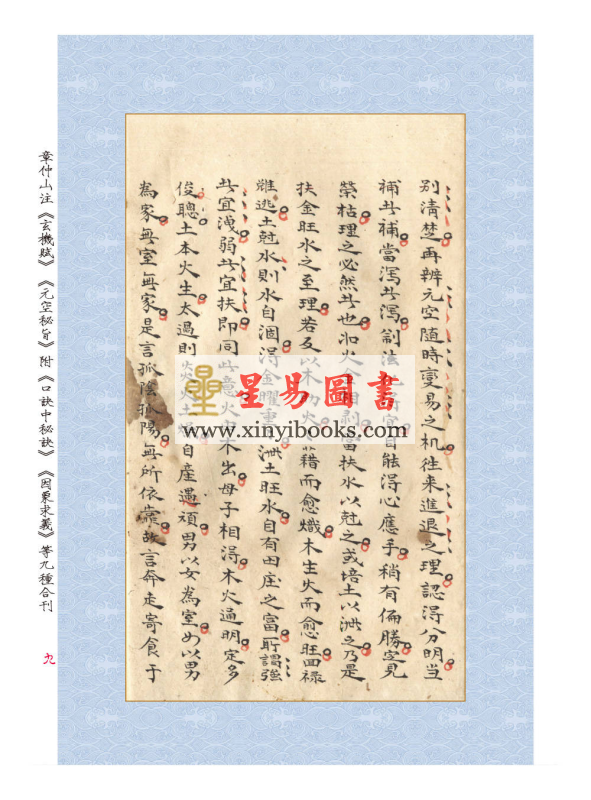 別清楚再辨元空隨時變易之机往來進退之理認得分明當
補此補當瀉此瀉制法得宜自能得心應手稍有偏勝定見
榮枯理之必然此也水火相剋當扶水以尅之或培土以洩之乃是
扶金旺水之至理若反以木火藉而愈熾木生火而愈旺回祿
难逃土尅水則水自涸得金曜洩土旺水自有田庄之富所謂強
此宜洩弱此宜扶即同此意火木出母子相得木火通明定多
俊聰土本火生太過則火土自產遇頑男以女為室女以男
為家無室無家是言孤陰孤陽無所依靠故言奔走寄食于
章仲山注《玄機賦》《元空秘旨》附《口訣中秘訣》《因象求義》等九種合刊
九
星易圖書
www.xinyibooks.com